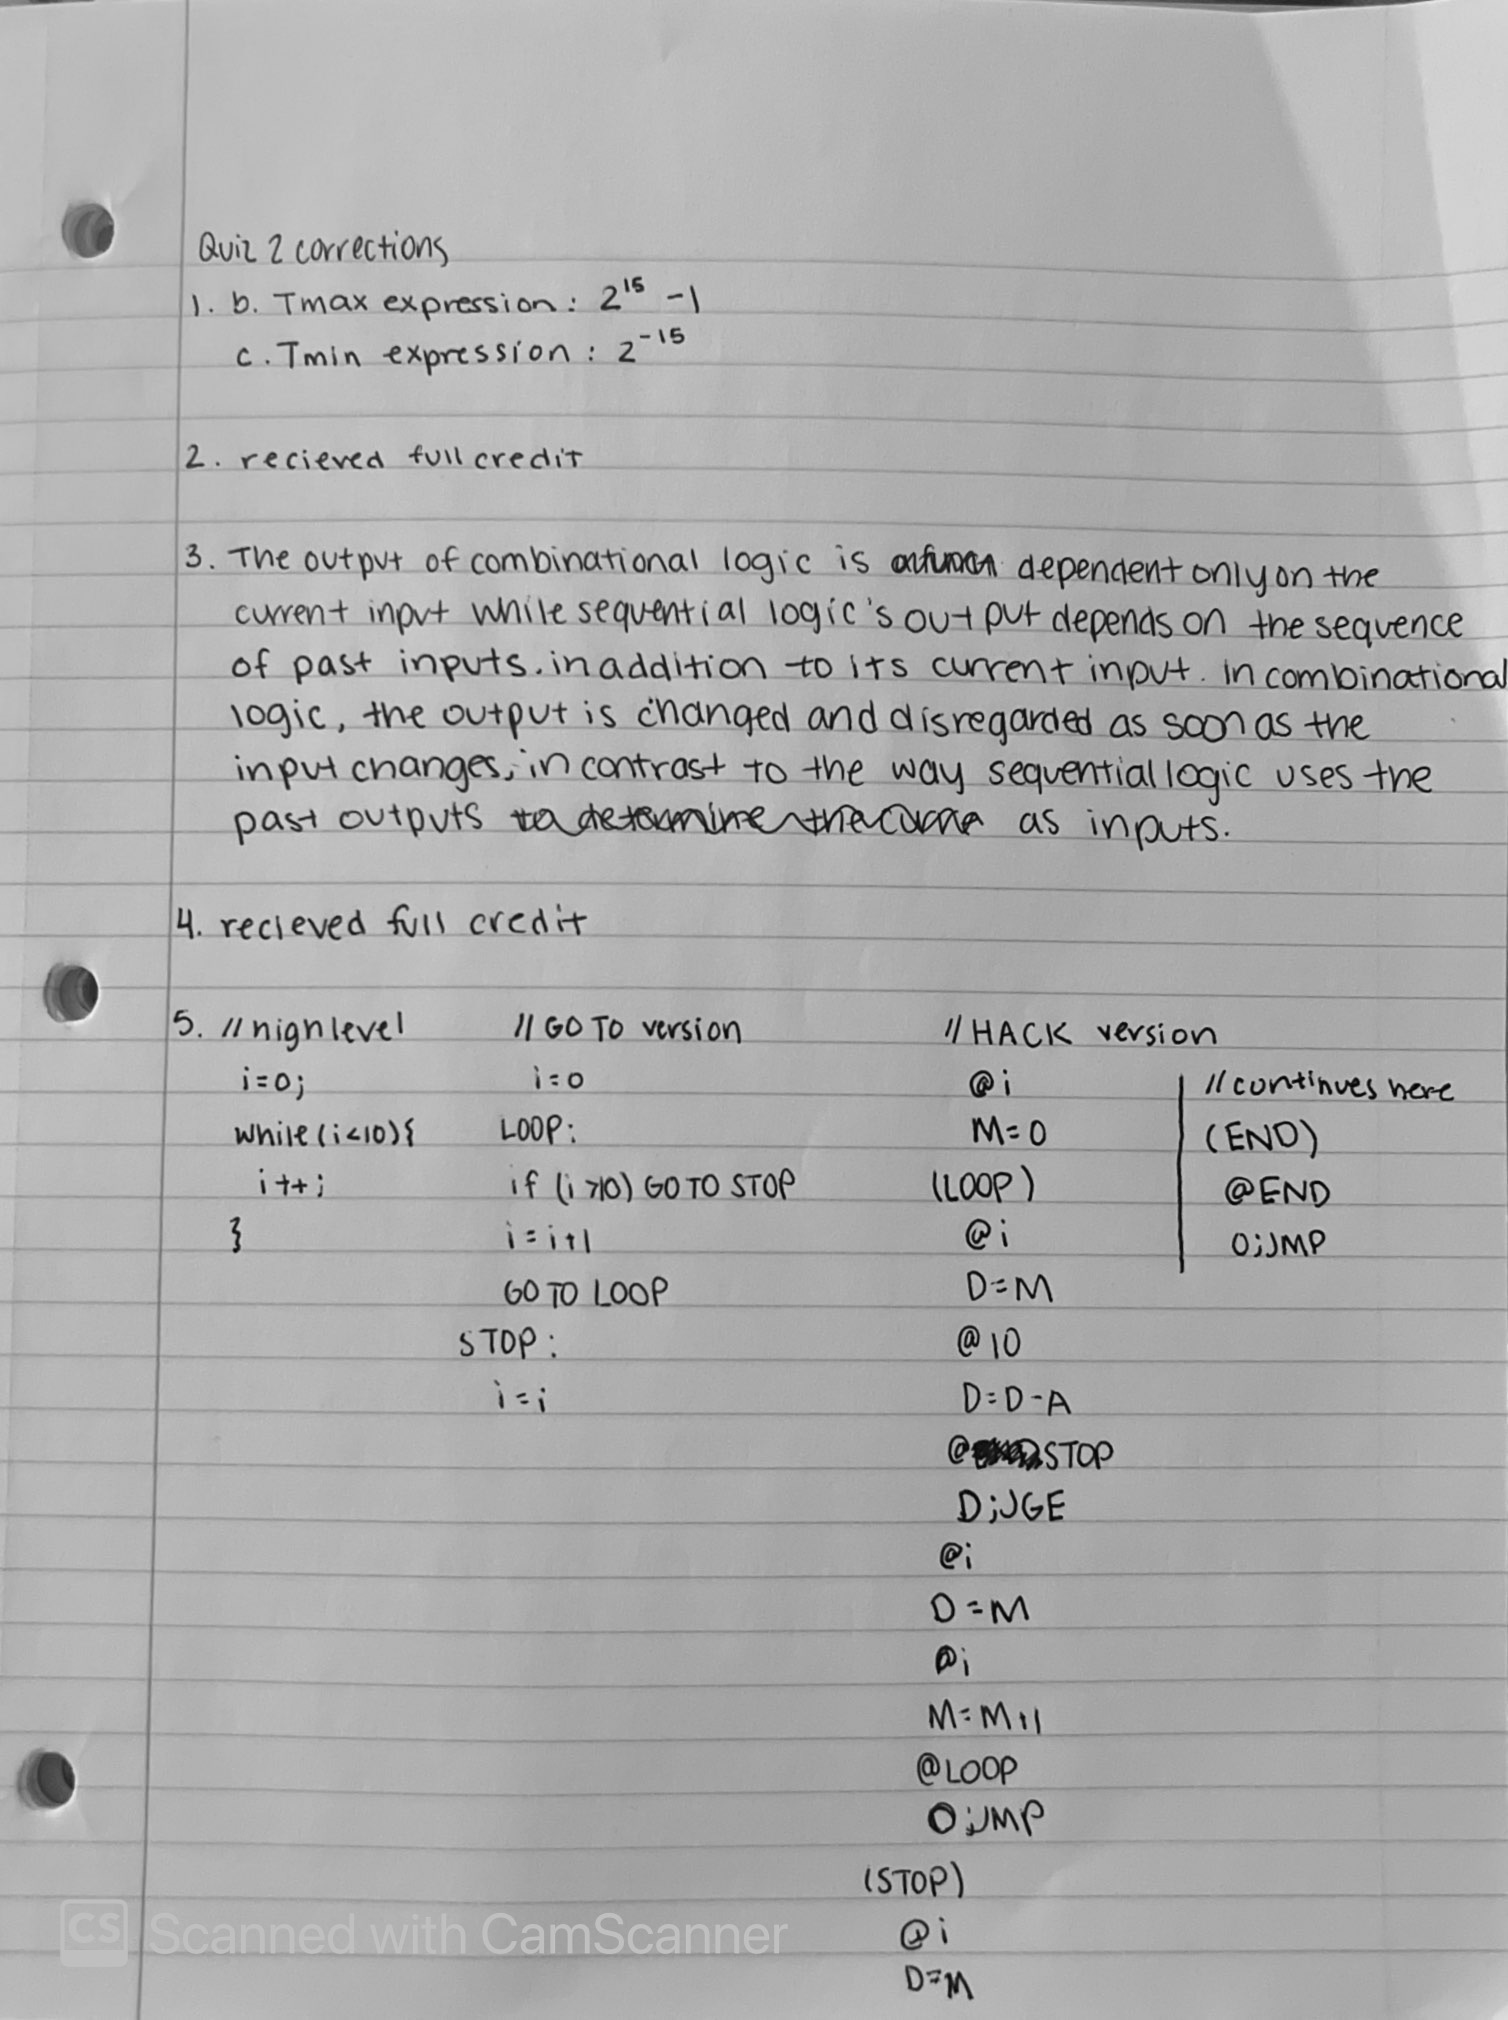 Quiz 2 corrections
1. b. Tmax expression: 2^15 -1
c. Tmin expression: 2^-15
2. recieved full credit
3. The output of combinational logic is dependent only on the
current input while sequential logic's output depends on the sequence
of past inputs. in addition to its current input. In combinational
logic, the output is changed and disregarded as soon as the
input changes, in contrast to the way sequential logic uses the
past outputs as inputs.
4. recieved full credit
5. // high level
i=0;
while(i<10){
i++;
}
// GO TO version
i=0
LOOP:
if (i>10) GO TO STOP
i=i+1
GO TO LOOP
STOP:
i=i
// HACK version
@i
M=0
(LOOP)
@i
D=M
@10
D=D-A
@STOP
D;JGE
@i
D=M
@i
M=M+1
@LOOP
0;JMP
(STOP)
@i
D=M
// continues here
(END)
@END
0;JMP
CS Scanned with CamScanner